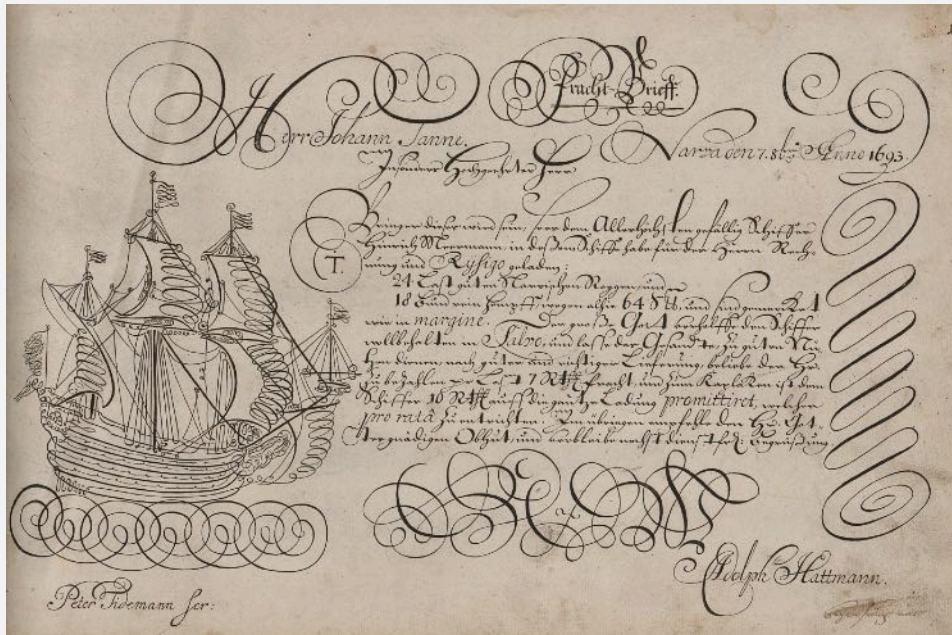 Fracht-Brieff.
Herr Johann Tanne.
Narva den 7. 8br: Anno 1693.
Insonders Hochgeehrter Herr
Bringer dieses wird sein, so es dem Allerhöchsten gefällig Schiffer
Hinrich Meermann, in deßen Schiffe habe für der Herrn Rech-
T.
nung und Rysigo geladen;
24 Last guten Narvischen Roggen, und
18 Bund rein Hanpff, wegen alhie 64 und sind gemerket
wie in margine. Der große Gott verhelffe den Schiffer
wollbehalten in Salvo, und lasse der Gesandte, zu guten Nu-
tzen dienen, nach guter und richtiger Lieferung, beliebe der Hr
zu bezahlen pr Last 7 Rthr fracht, und zum Kaplaken ist dem
Schiffer 16 Rthr auff die gantze Ladung promittiret, welchen
pro rata zu entrichten. Im übrigen empfehle den Hn. Got-
tes gnädigen Obhut, und verbleibe nechst dienstfrd: Begrüßung
Adolph Hattmann.
Peter Tidemann scr: